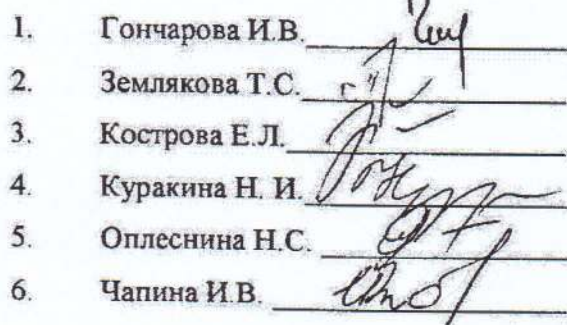 1. Гончарова И.В.
2. Землякова Т.С.
3. Кострова Е.Л.
4. Куракина Н. И.
5. Оплеснина Н.С.
6. Чапина И.В.